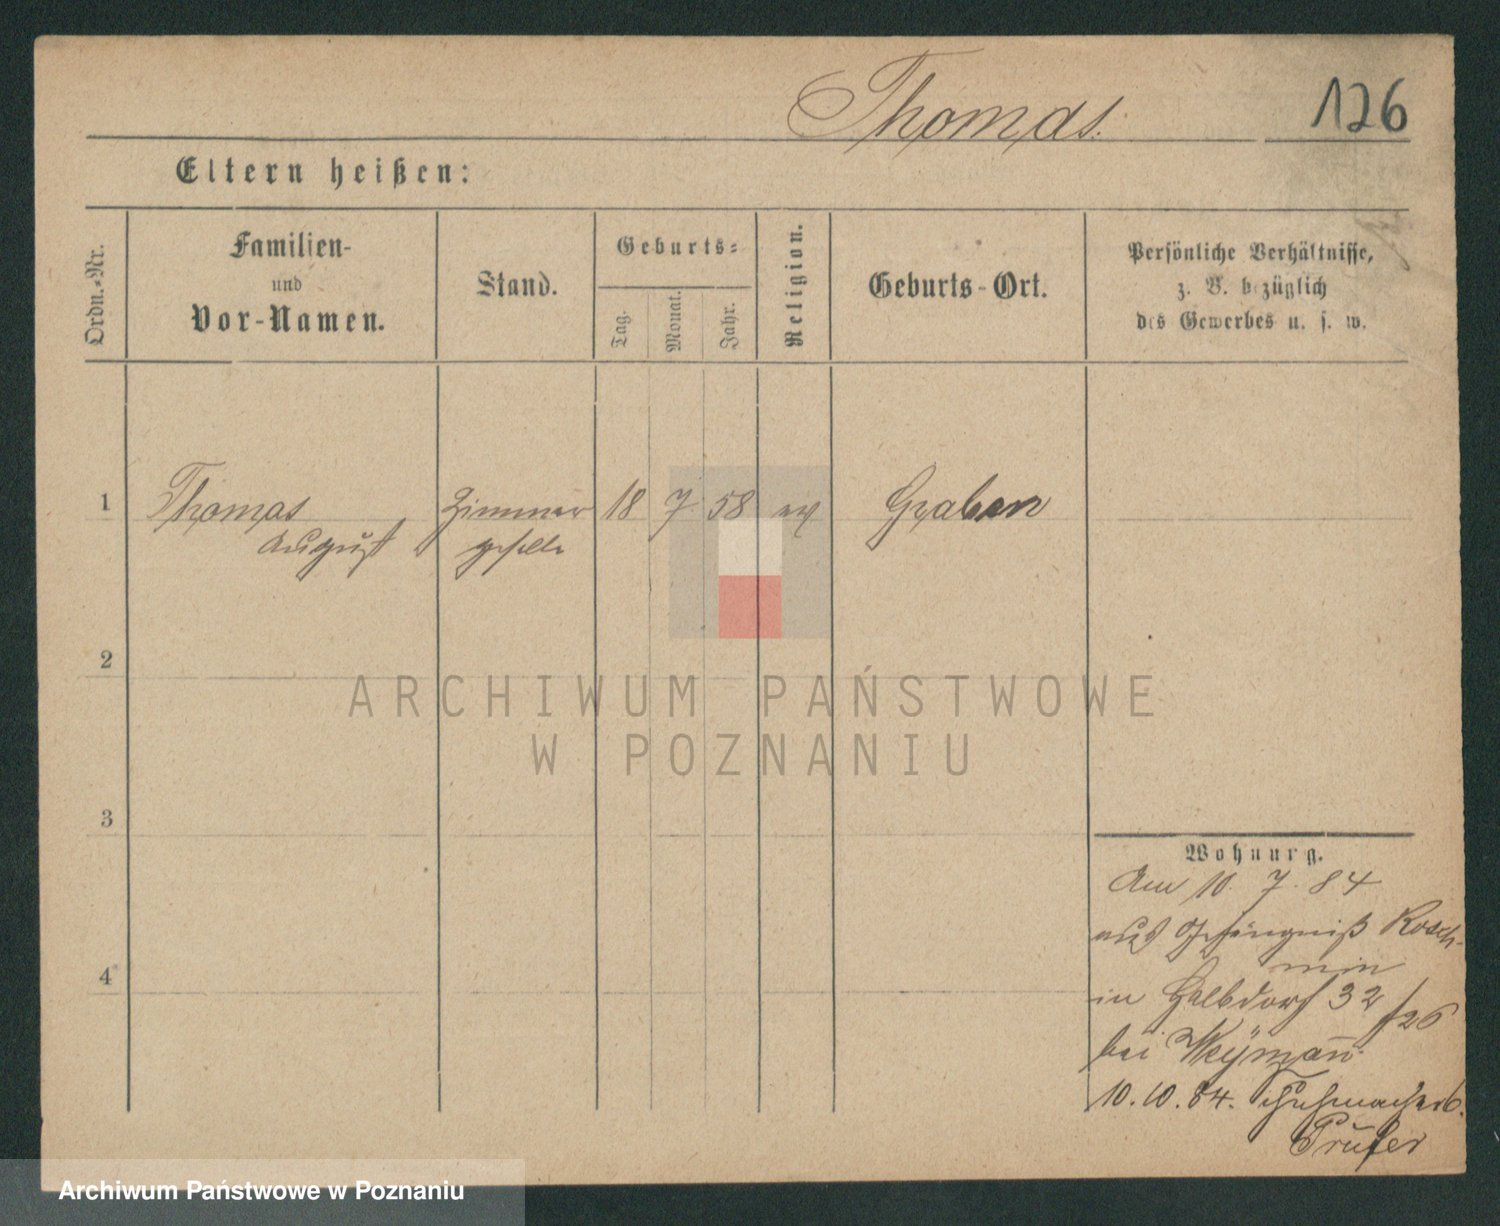 Thomas.
126
Eltern heißen:
Ordn.-Nr.
Familien-
und
Vor-Namen.
Stand.
Geburts-
Tag.
Monat.
Jahr.
Religion.
Geburts-Ort.
Persönliche Verhältnisse,
z. B. bezüglich
des Gewerbes u. s. w.
1 Thomas Zimmer 18 7 58 ev Graben
August geselle
2
3
4
Wohnung.
Am 10. 7. 84
aus Gefängniß Kosch-
min
in Halbdorf 32
bei Weÿmann
10.10.84. Schuhmacherb.
Prüfer
ARCHIWUM PAŃSTWOWE
W POZNANIU
Archiwum Państwowe w Poznaniu